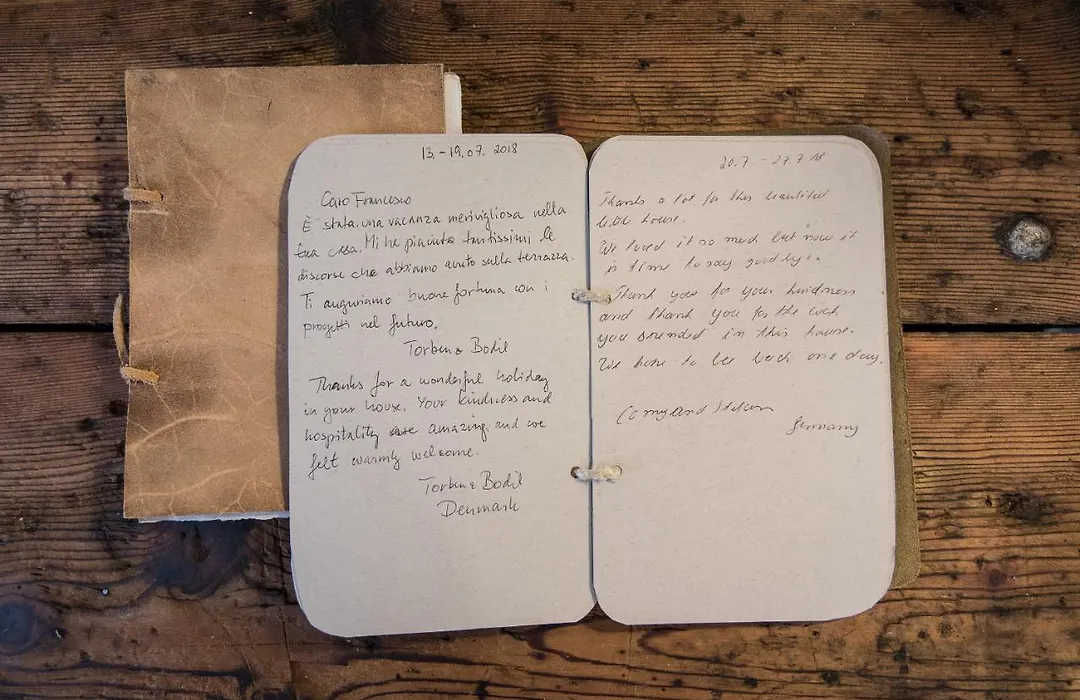 13.-19.07. 2018
Caro Francesco
È stata una vacanza merivigliosa nella
tua casa. Mi ha piaciuto tantissimi le
discorse che abbiamo avuto sulla terrazza.
Ti auguriamo buone fortuna con i
progetti nel futuro.
Torben & Bodil
Thanks for a wonderful holiday
in your house. Your kindness and
hospitality are amazing and we
felt warmly welcome.
Torben & Bodil
Denmark
20.7. - 27.7 18
Thanks a lot for this beautiful
little house.
We loved it so much but now it
is time to say goodbye.
Thank you for your kindness
and thank you for the
you in this house.
We hope to be back one day.
and
Germany